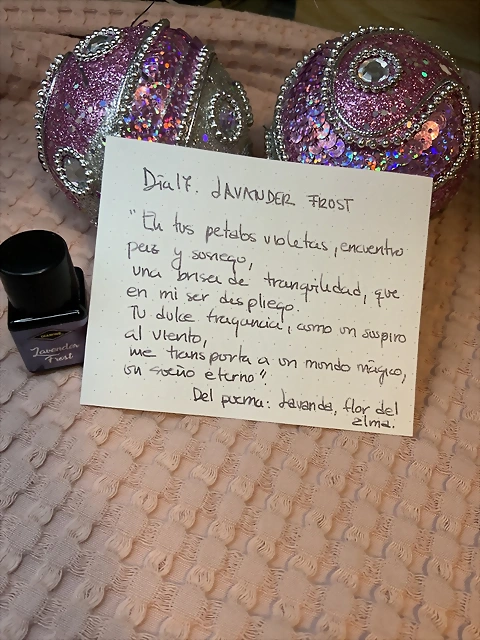 Día 17. LAVANDER FROST
"En tus petalos violetas, encuentro
paz y sosiego,
una brisa de tranquilidad, que
en mi ser despliego.
Tu dulce fragancia, como un suspiro
al viento,
me transporta a un mundo mágico,
un sueño eterno"
Del poema: Lavanda, flor del
alma.
Lavender
Frost